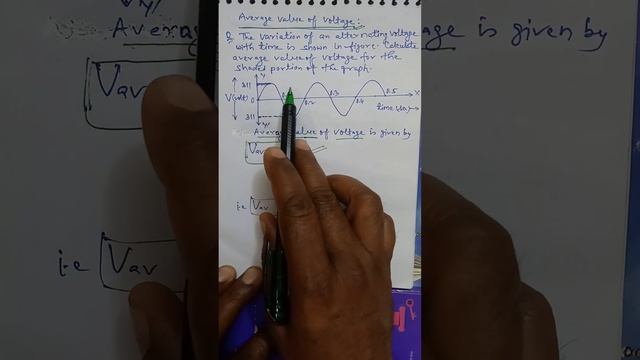 Average value of Voltage:
Q. The variation of an alternating voltage
with time is shown in figure. Calculate
average value of voltage for the
shaded portion of the graph.
Y
311
V(volt)
0
0.2
0.3
0.4
0.5
X
time
311
Y'
Average value of voltage is given by
Vav
i.e Vav
is given by
Vav
i.e Vav